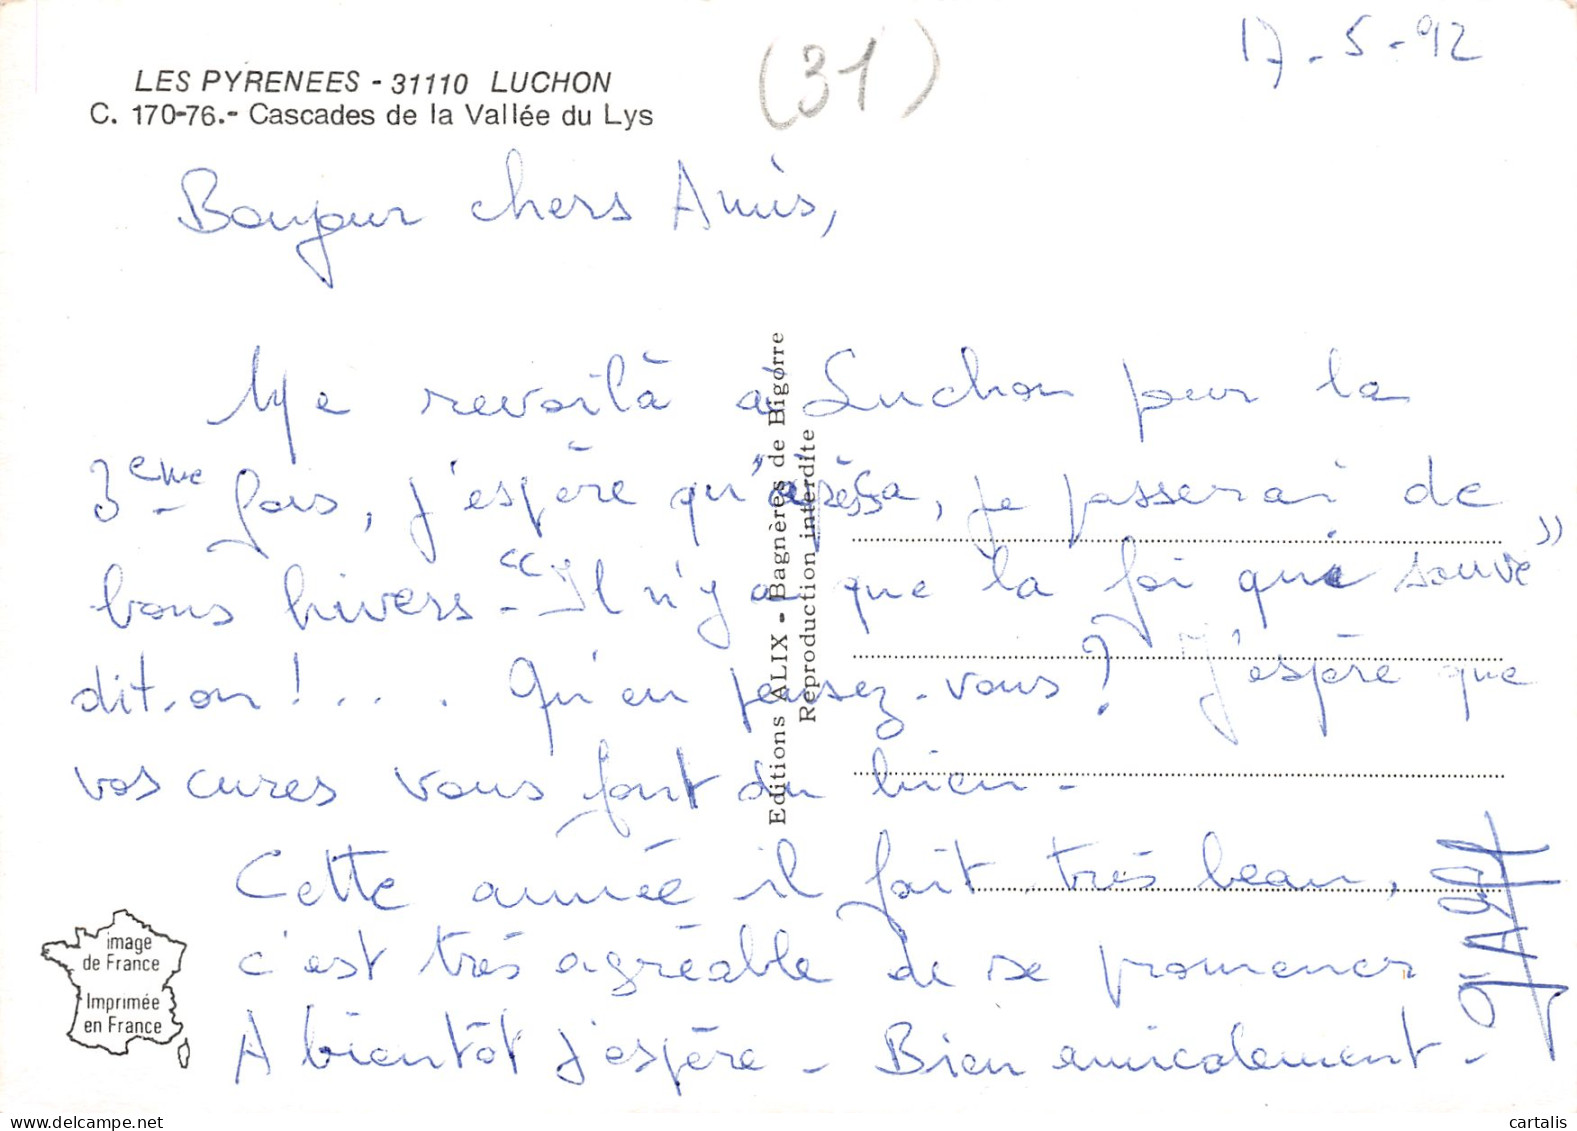 17-5-92
(31)
LES PYRENEES - 31110 LUCHON
C. 170-76.- Cascades de la Vallée du Lys
Bonjour chers Amis,
Me revoilà à Luchon pour la
3ème fois, j'espère qu'après ça, je passerai de
bons hivers - "Il n'y a que la foi qui sauve"
dit-on !... . Qu'en pensez-vous ? J'espère que
vos cures vous font du bien -
Cette année il fait très beau,
c'est très agréable de se promener
A bientôt j'espère - Bien amicalement -
Editions ALIX - Bagnères de Bigorre
Reproduction interdite
image
de France
Imprimée
en France
cartalis